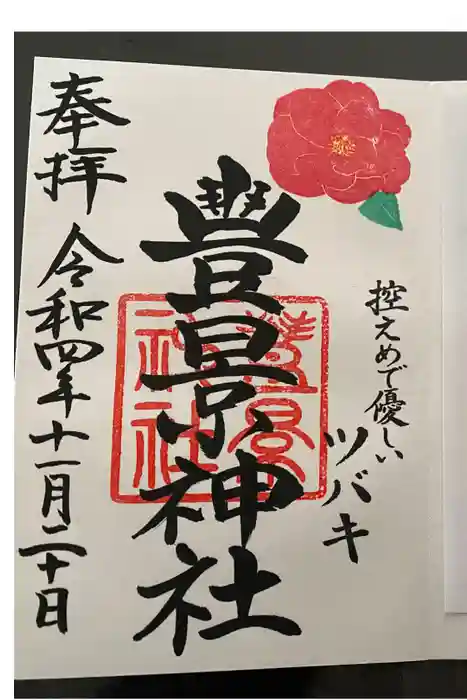 控えめで優しい
ツバキ
豊景神社
豊景神社
奉拝
令和四年十一月二十日